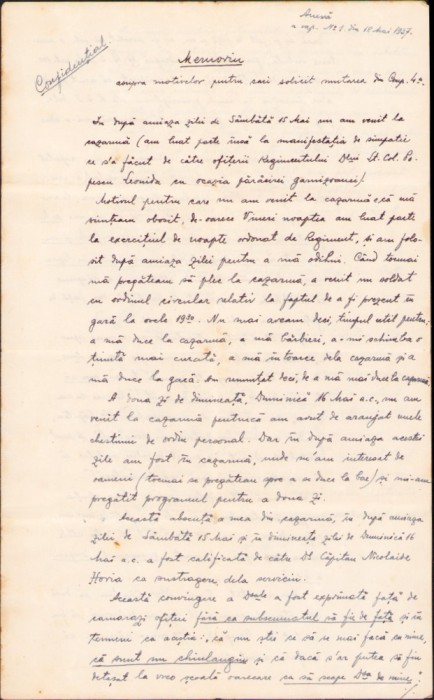 Anexă
a rap. No 1 din 18 Mai 1937.
Confidențial
Memoriu
asupra motivelor pentru cari solicit mutarea din Comp. 4-a
In după amiaza zilei de Sâmbătă 15 Mai nu am venit la
cazarmă (am luat parte însă la manifestația de simpatie
ce s'a făcut de către ofițerii Regimentului Dlui Lt. Col. Po-
pescu Leonida cu ocazia părăsirei garnizoanei)
Motivul pentru care nu am venit la cazarmă e, că mă
simțeam obosit, de-oarece Vineri noaptea am luat parte
la exercițiul de noapte ordonat de Regiment, și am folo-
sit după amiaza zilei pentru a mă odihni. Când tocmai
mă pregăteam să plec la cazarmă, a venit un soldat
cu ordinul circular relativ la faptul de a fi prezent în
gară la orele 19. Nu mai aveam deci, timpul util pentru
a mă duce la cazarmă, a mă bărbieri, a-mi schimba o
ținută mai curată, a mă întoarce dela cazarmă și a
mă duce la gară. Am renunțat deci, de a mă mai duce la cazarmă.
A doua zi de dimineață, Duminică 16 Mai a.c. nu am
venit la cazarmă pentrucă am avut de aranjat unele
chestiuni de ordin personal. Dar în după amiaza acestei
zile am fost în cazarmă, unde m'am interesat de
oameni (tocmai se pregăteau spre a se duce la) și mi-am
pregătit programul pentru a doua zi.
Această absență a mea din cazarmă, în după amiaza
zilei de Sâmbătă 15 Mai și în dimineața zilei de Duminică 16
Mai a.c. a fost calificată de către Dl Căpitan Nicolaide
Horia ca sustragere dela serviciu.
Această convingere a Dsale a fost exprimată față de
camarazi ofițeri fără ca subsemnatul să fie de față și în
termeni ca aceștia: „că nu știe ce să se mai facă cu mine,
că sunt un chiulangiu și că dacă s'ar putea să fiu
detașat la vreo școală oarecare ca să scape Dsa de mine"